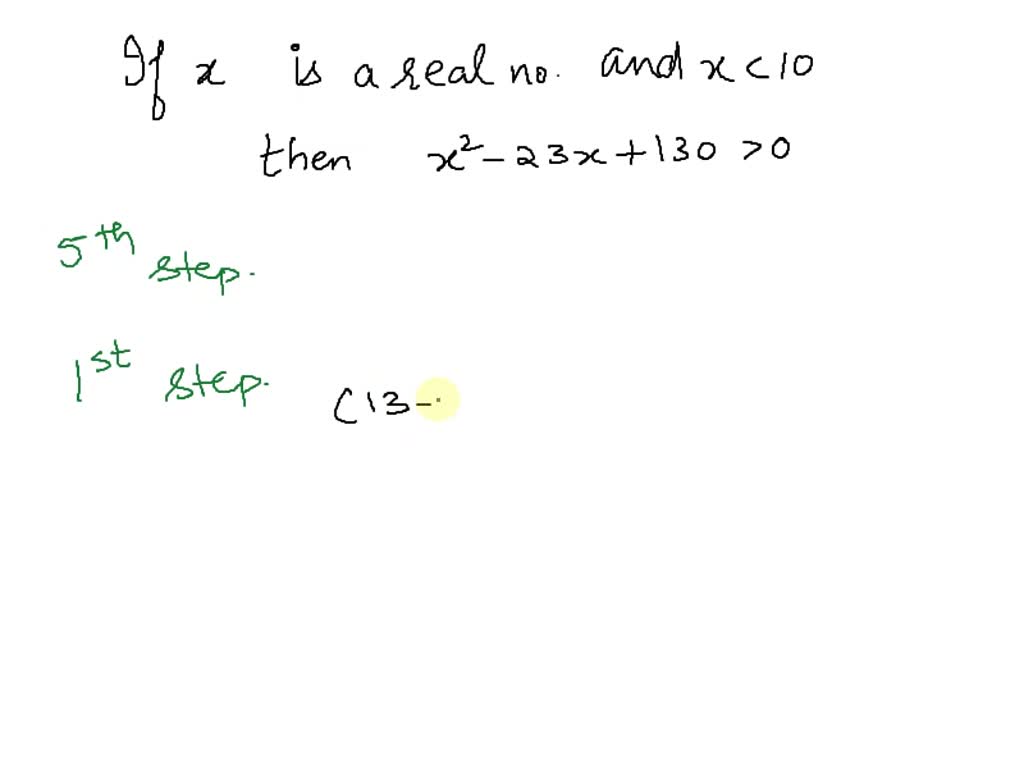 If x is a real no. and x < 10
then x² - 23x + 130 > 0
5th step.
1st step. (13 -